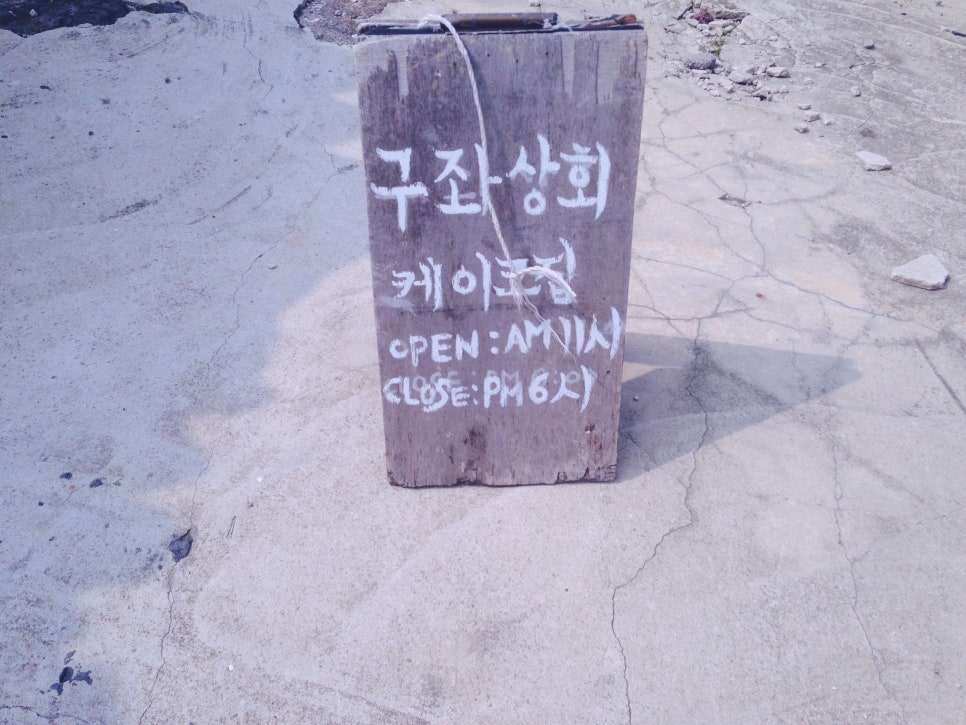 구좌상회
케이크집
OPEN : AM 11시
CLOSE : PM 6시